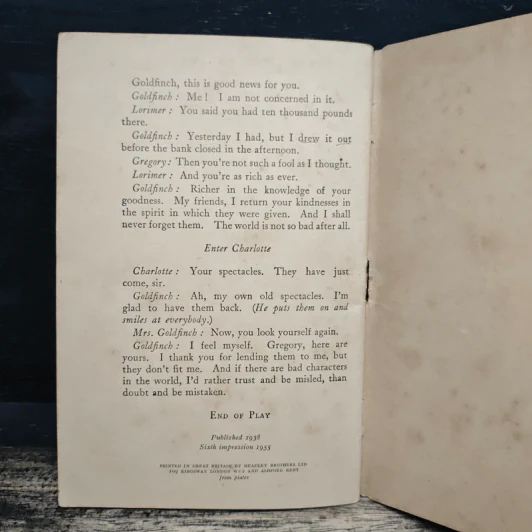 Goldfinch, this is good news for you.
Goldfinch : Me ! I am not concerned in it.
Lorimer : You said you had ten thousand pounds
there.
Goldfinch : Yesterday I had, but I drew it out
before the bank closed in the afternoon.
Gregory : Then you're not such a fool as I thought.
Lorimer : And you're as rich as ever.
Goldfinch : Richer in the knowledge of your
goodness. My friends, I return your kindnesses in
the spirit in which they were given. And I shall
never forget them. The world is not so bad after all.
Enter Charlotte
Charlotte : Your spectacles. They have just
come, sir.
Goldfinch : Ah, my own old spectacles. I'm
glad to have them back. (He puts them on and
smiles at everybody.)
Mrs. Goldfinch : Now, you look yourself again.
Goldfinch : I feel myself. Gregory, here are
yours. I thank you for lending them to me, but
they don't fit me. And if there are bad characters
in the world, I'd rather trust and be misled, than
doubt and be mistaken.
END OF PLAY
Published 1938
Sixth impression 1955
PRINTED IN GREAT BRITAIN BY HEADLEY BROTHERS LTD
109 KINGSWAY LONDON WC2 AND ASHFORD KENT
from plates